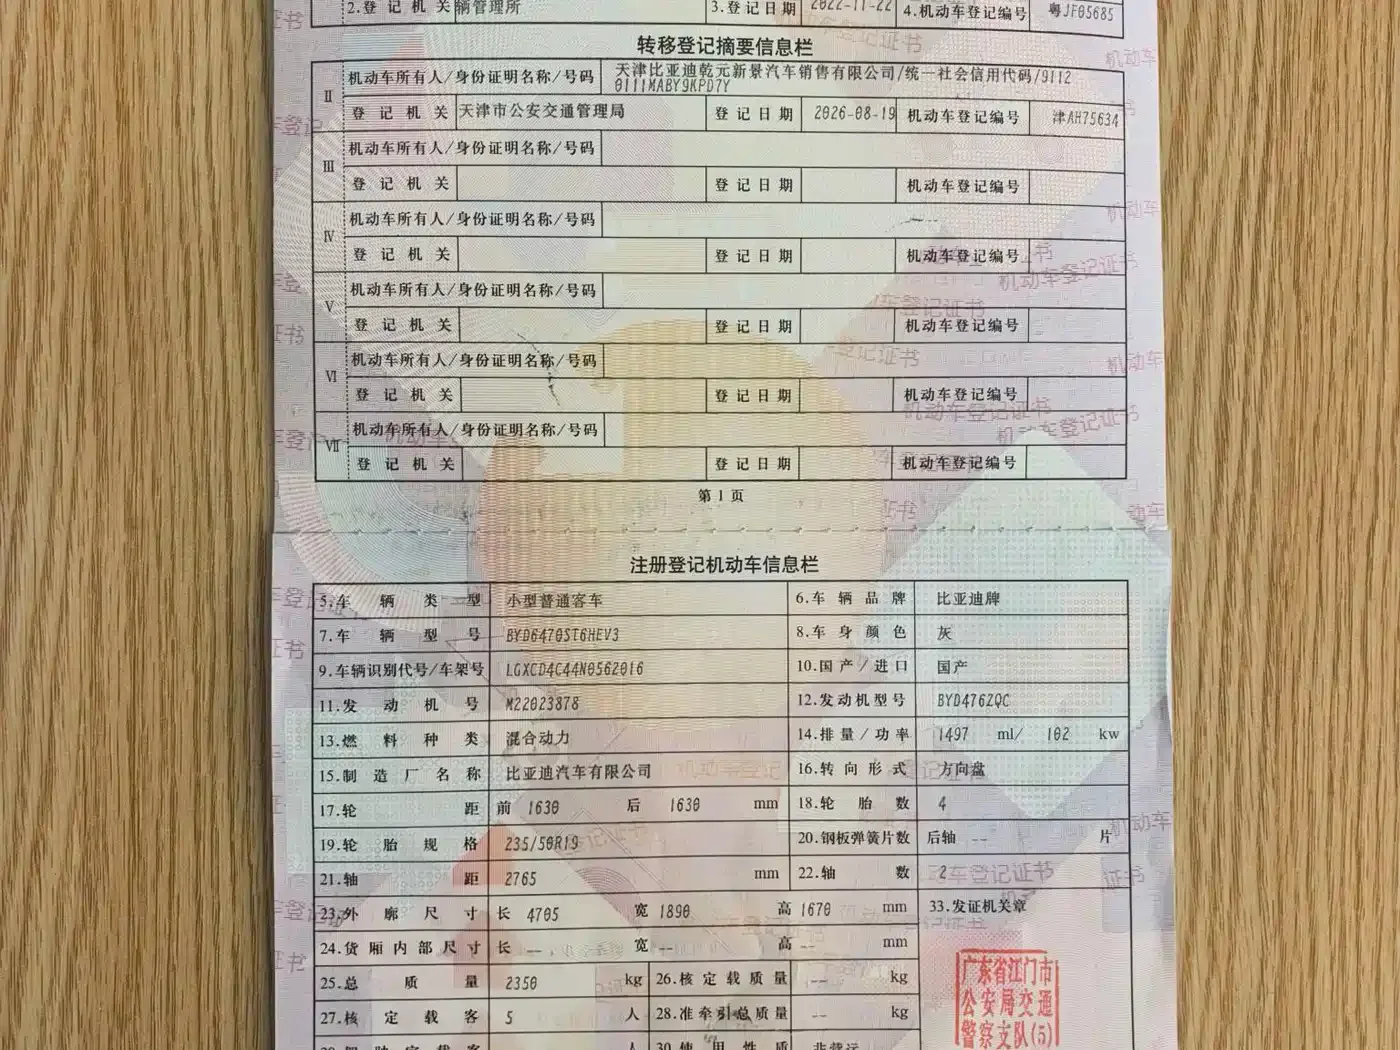 2.登记机关 辆管理所 3.登记日期 2022-11-22 4.机动车登记编号 粤JF05685
转移登记摘要信息栏
Ⅱ 机动车所有人/身份证明名称/号码 天津比亚迪乾元新景汽车销售有限公司/统一社会信用代码/9112
0111MABY9KPD7Y
登记机关 天津市公安交通管理局 登记日期 2026-08-19 机动车登记编号 津AH75634
Ⅲ 机动车所有人/身份证明名称/号码
登记机关 登记日期 机动车登记编号
Ⅳ 机动车所有人/身份证明名称/号码
登记机关 登记日期 机动车登记编号
Ⅴ 机动车所有人/身份证明名称/号码
登记机关 登记日期 机动车登记编号
Ⅵ 机动车所有人/身份证明名称/号码
登记机关 登记日期 机动车登记编号
Ⅶ 机动车所有人/身份证明名称/号码
登记机关 登记日期 机动车登记编号
第1页
注册登记机动车信息栏
5.车辆类型 小型普通客车 6.车辆品牌 比亚迪牌
7.车辆型号 BYD6470ST6HEV3 8.车身颜色 灰
9.车辆识别代号/车架号 LGXCD4C44N0562016 10.国产/进口 国产
11.发动机号 M22023878 12.发动机型号 BYD476ZQC
13.燃料种类 混合动力 14.排量/功率 1497 ml/ 102 kw
15.制造厂名称 比亚迪汽车有限公司 16.转向形式 方向盘
17.轮距 前 1630 后 1630 mm 18.轮胎数 4
19.轮胎规格 235/50R19 20.钢板弹簧片数 后轴 -- 片
21.轴距 2765 mm 22.轴数 2
23.外廓尺寸 长 4705 宽 1890 高 1670 mm 33.发证机关章
24.货厢内部尺寸 长 -- 宽 -- 高 -- mm
25.总质量 2350 kg 26.核定载质量 -- kg
27.核定载客 5 人 28.准牵引总质量 -- kg
人 30.使用性质 非营运
广东省江门市
公安局交通
警察支队(5)